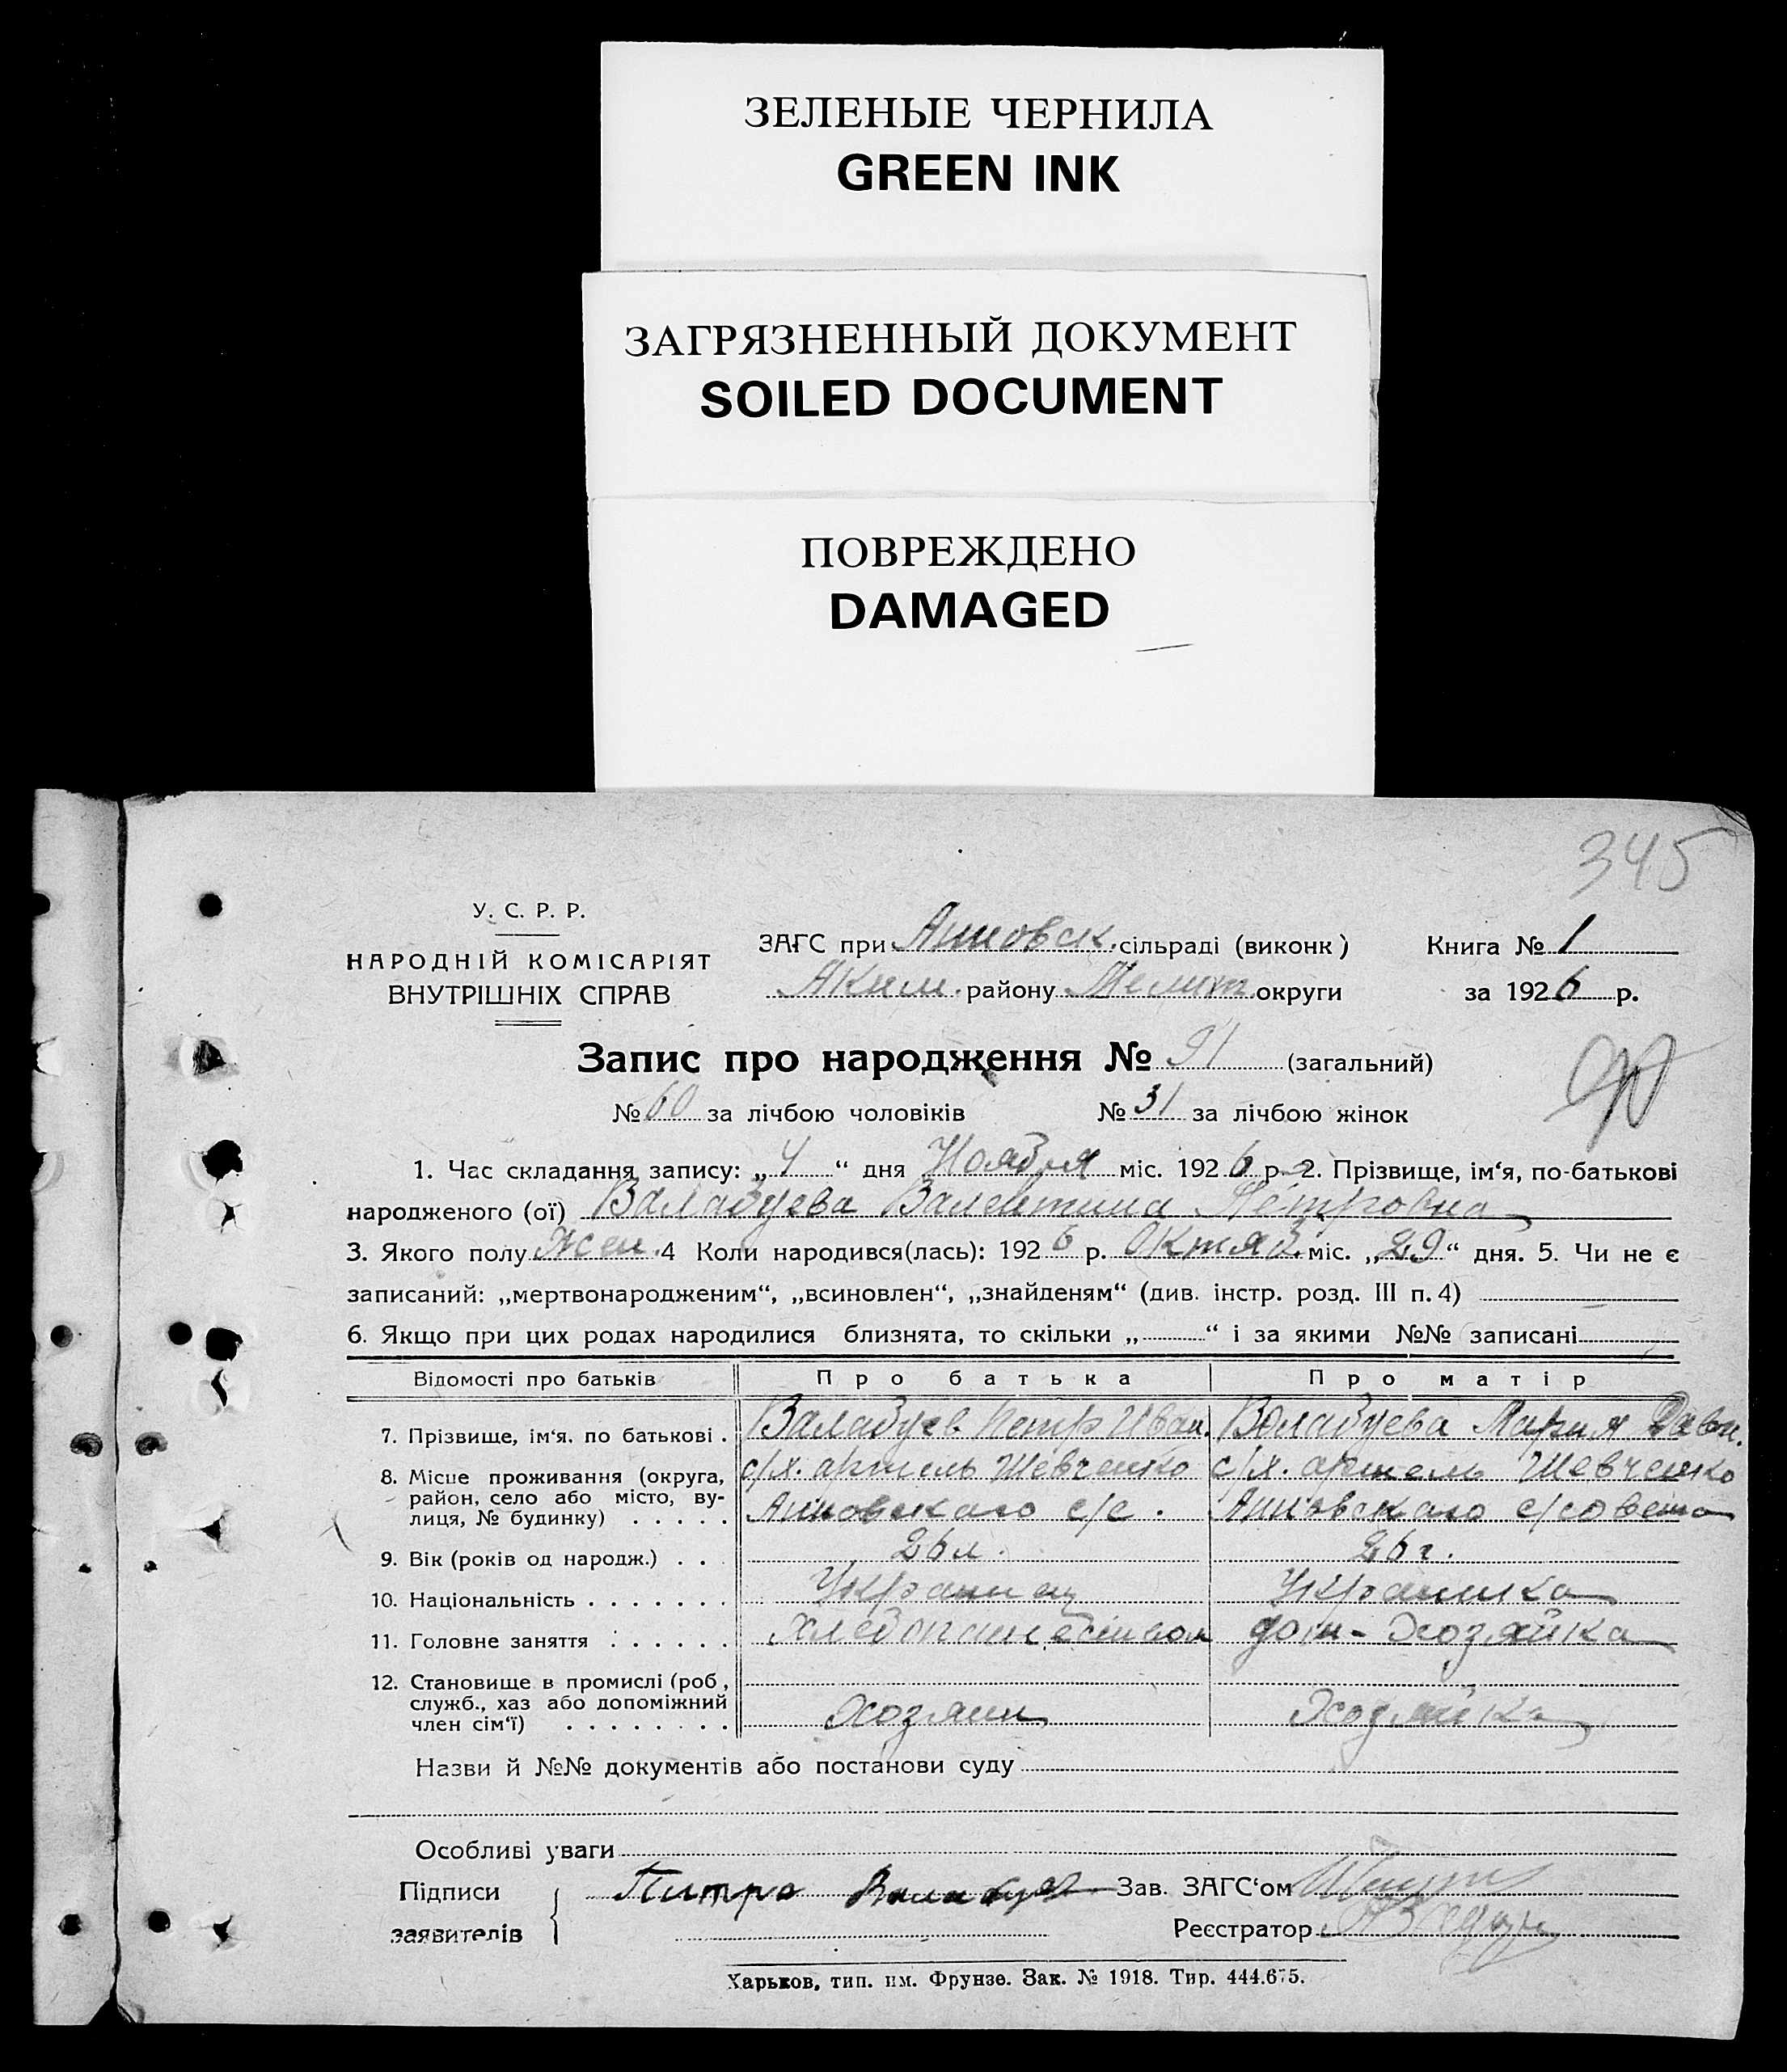 ЗЕЛЕНЫЕ ЧЕРНИЛА
GREEN INK
ЗАГРЯЗНЕННЫЙ ДОКУМЕНТ
SOILED DOCUMENT
ПОВРЕЖДЕНО
DAMAGED
345
У. С. Р. Р.
НАРОДНІЙ КОМІСАРІЯТ
ВНУТРІШНІХ СПРАВ
ЗАГС при Анновск. сільраді (виконк)
Аким. району Мелит округи
Книга № 1
за 1926 р.
Запис про народження № 91 (загальний)
№ 60 за лічбою чоловіків № 31 за лічбою жінок
1. Час складання запису: „4“ дня Ноября міс. 1926 р. 2. Прізвище, ім‘я, по-батькові
народженого (ої) Валабуева Валентина Петровна
3. Якого полу Жен. 4 Коли народився(лась): 1926 р. Октяб. міс. „29“ дня. 5. Чи не є
записаний: „мертвонародженим“, „всиновлен“, „знайденям“ (див. інстр. розд. III п. 4)
6. Якщо при цих родах народилися близнята, то скільки „ “ і за якими №№ записані
Відомості про батьків Про батька Про матір
7. Прізвище, ім‘я. по батькові . Валабуев Петр Иван. Валабуева Мария Дави.
8. Місце проживання (округа, с/х. артель Шевченко с/х. артель Шевченко
район, село або місто, ву-
лиця, № будинку) . . . . . Анновскаго с/с. Анновскаго с/совета
9. Вік (років од народж.) . . . 26 л. 26 г.
10. Національність . . . . . . . Украинец Украинка
11. Головне заняття . . . . . . Хлебопашеством дом-Хозяйка
12. Становище в промислі (роб,
служб., хаз або допоміжний
член сім‘ї) . . . . . . . . Хозяин Хозяйка
Назви й №№ документів або постанови суду
Особливі уваги
Підписи
заявителів
Питро Валабуев
Зав. ЗАГС‘ом
Реєстратор
Харьков, тип. им. Фрунзе. Зак. № 1918. Тир. 444.675.